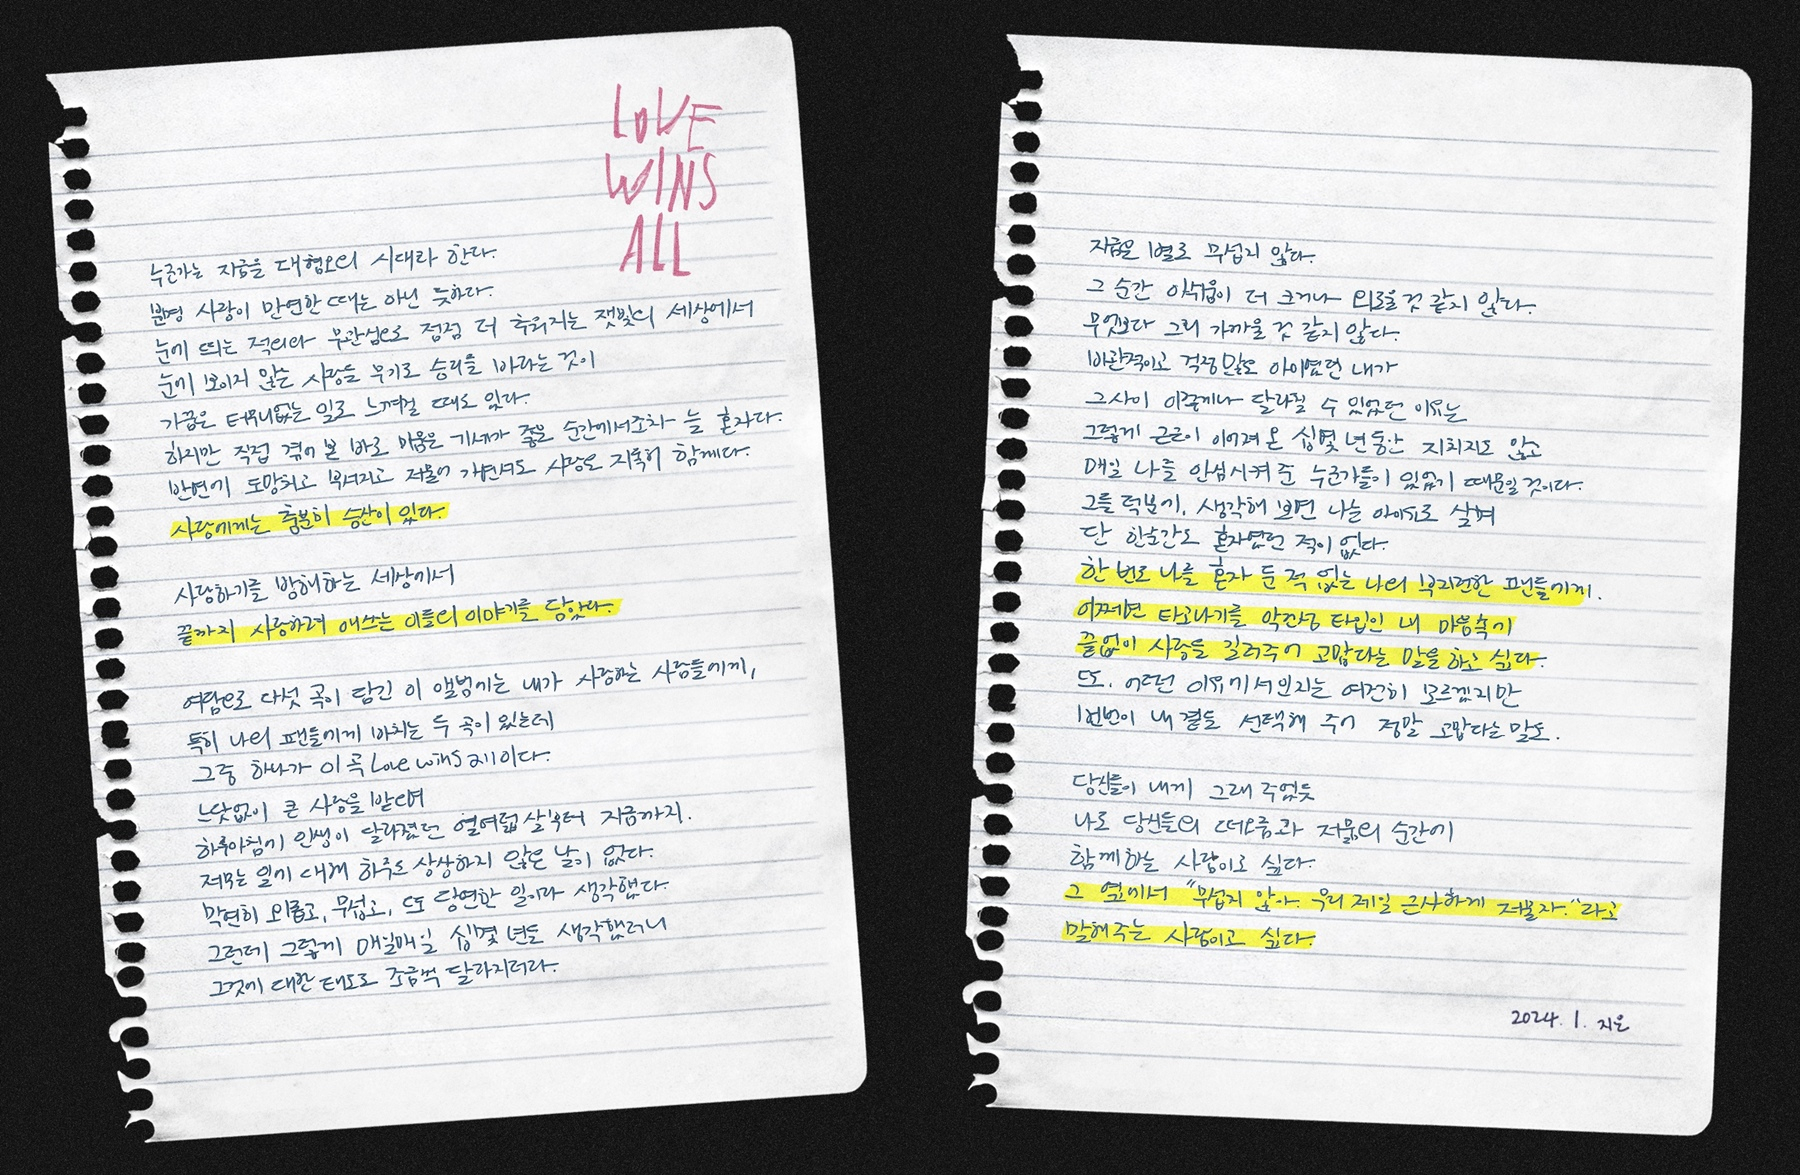 LOVE
WINS
ALL
누군가는 지금을 대혐오의 시대라 한다.
분명 사랑이 만연한 때는 아닌 듯하다.
눈에 띄는 적의와 무관심으로 점점 더 추워지는 잿빛의 세상에서
눈에 보이지 않는 사랑을 무기로 승리를 바라는 것이
가끔은 터무니없는 일로 느껴질 때도 있다.
하지만 직접 겪어 본 바로 미움은 기세가 좋을 순간에서조차 늘 혼자다.
반면에 도망치고 부서지고 저물어 가면서도 사랑은 지독히 함께다.
사랑에게는 충분히 승산이 있다.
사랑하기를 방해하는 세상에서
끝까지 사랑하려 애쓰는 이들의 이야기를 담았다.
여담으로 다섯 곡이 담긴 이 앨범에는 내가 사랑하는 사람들에게,
특히 나의 팬들에게 바치는 두 곡이 있는데
그중 하나가 이 곡 Love wins all이다.
느닷없이 큰 사랑을 받으며
하루아침에 인생이 달라졌던 열여덟 살부터 지금까지.
저무는 일에 대해 하루도 상상하지 않은 날이 없다.
막연히 외롭고, 무섭고, 또 당연한 일이라 생각했다.
그런데 그렇게 매일매일 십몇 년을 생각했더니
그것에 대한 태도도 조금씩 달라지더라.
지금은 별로 무섭지 않다.
그 순간 아쉬움이 더 크거나 외로울 것 같지 않다.
무엇보다 그리 가까울 것 같지 않다.
비관적이고 걱정 많은 아이였던 내가
그 사이 이렇게나 달라질 수 있었던 이유는
그렇게 근근이 이어져 온 십몇 년 동안 지치지도 않고
매일 나를 안심시켜 준 누군가들이 있었기 때문일 것이다.
그들 덕분에, 생각해 보면 나는 아이유로 살며
단 한순간도 혼자였던 적이 없다.
한 번도 나를 혼자 둔 적 없는 나의 부지런한 팬들에게.
어쩌면 타고나기를 악건성 타입인 내 마음속에
끝없이 사랑을 길러주어 고맙다는 말을 하고 싶다.
또. 어떤 이유에서인지는 여전히 모르겠지만
번번이 내 곁을 선택해 주어 정말 고맙다는 말도.
당신들이 내게 그래 주었듯
나도 당신들의 떠오름과 저묾의 순간에
함께하는 사람이고 싶다.
그 옆에서 "무섭지 않아. 우리 제일 근사하게 저물자." 라고
말해주는 사람이고 싶다.
2024. 1. 지은